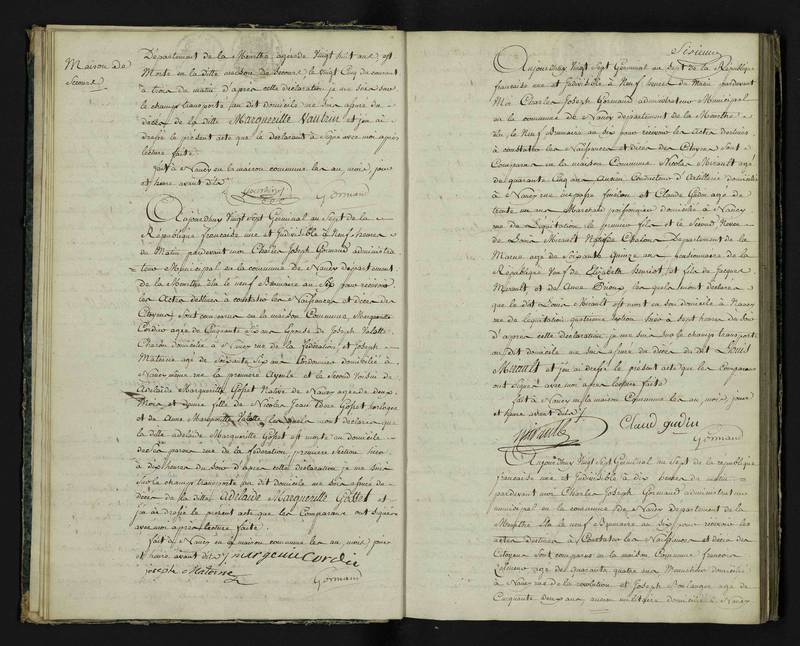 Maison de
Secours
Département de la Meurthe agée de Vingt huit ans est
Morte en la ditte maison de Secours le Vingt Cinq du courant
à trois du matin d'apres cette déclaration je me suis sur
le champ transporté au dit domicile me suis assuré du
décès de la ditte Margueritte Vautrin et j'en ai
dressé le présent acte que le déclarant a Signé avec moi après
lecture faite
fait à Nancy en la maison commune les an, mois, jour
et heure avant dits
Gormand
Aujourdhuy Vingt Sept Germinal an Sept de la
République française une et Indivisible à Neuf heures
du Matin pardevant moi Charles Joseph Gormand administra
teur Municipal en la commune de Nancy département
de la Meurthe élu le neuf Brumaire an Six pour recevoir
les Actes destinés à constater les Naissances et décès des
Citoyens Sont comparus en la maison Commune, Marguerite
Cordier agée de Cinquante ans Epouse de Joseph Valotte
Charon domiciliée à Nancy rue de la fédération, et Joseph
Matorne agé de soixante Six ans Cordonnier domicilié à
Nancy même rue la premiere Ayeule et le Second Voisin de
Adelaïde Margueritte Gosset Native de Nancy agée de deux
Mois et demie fille de Nicolas Jean Gosset horloger
et de Anne Marguerite Valotte lesquels mont déclaré que
la ditte adelaide Marguerite Gosset est morte au domicile
de ses pareux rue de la fédération premiere Section hier
à dix heures du Soir d'apres cette déclaration je me suis
Sur le champ transporté au dit domicile me suis assuré du
décès de la ditte Adelaïde Margueritte Gosset et
j'en ai dressé le présent acte que les Comparans ont signé
avec moi après lecture faite
fait à Nancy en la maison commune les an, mois, jour
et heure avant dits margerite Cordié
joseph Matorne
Gormand
Aujourdhuy Vingt Sept Germinal an Sept de la République
française une et Indivisible à Neuf heures du Matin pardevant
Moi Charles Joseph Gormand administrateur Municipal
en la commune de Nancy département de la Meurthe
élu le Neuf Brumaire an six pour recevoir les Actes destinés
à constater les Naissances et décès des Citoyens Sont
Comparus en la maison Commune Nicolas Mirault agé
de quarante Cinq ans Ancien Conducteur d'Artillerie domicilié
à Nancy rue et Claude Gudin agé de
trente un ans Marechal domicilié à Nancy
rue de Liquitation le premier fils et le Second Neveu
de Louis Mirault Natif de Chalon Département de la
Marne agé de Soixante Quinze ans Pensionnaire de la
République Veuf de Elizabeth fils de Jacques
Mirault et de Anne lesquels mont déclaré
que le dit Louis Mirault est mort en son domicile à Nancy
rue de Liquitation quatrieme Section hier à Sept heures du Soir
d'apres cette déclaration je me suis sur le champ transporté
au dit domicile me suis assuré du décès du dit Louis
Mirault et j'en ai dressé le présent acte que les Comparans
ont signé avec moi après lecture faite
fait à Nancy en la maison Commune les an mois jour
et heure avant dits
Mirault
Claud gudin
Gormand
Aujourdhuy Vingt Sept Germinal an Sept de la république
française une et Indivisible à dix heures du matin
pardevant moi Charles Joseph Gormand administrateur
municipal en la commune de Nancy département de la
Meurthe élu le neuf Brumaire an Six pour recevoir les
actes destinés à Constater les Naissances et décès des
Citoyens Sont comparus en la maison Commune francois
agé de Quarante quatre ans Menuisier domicilié
à Nancy rue de la révolution et Joseph Boulanger agé de
Cinquante deux ans, ancien militaire domicilié à Nancy